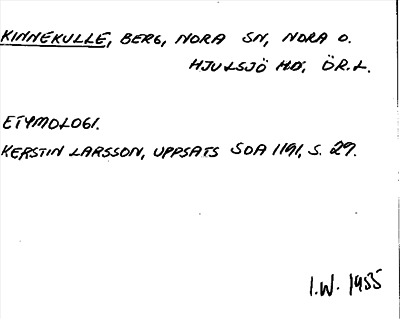 KINNEKULLE, BERG, NORA SN, NORA O.
HJULSJÖ HD, ÖR.L.
ETYMOLOGI.
KERSTIN LARSSON, UPPSATS SOA 1191, S. 29.
I.W. 1955